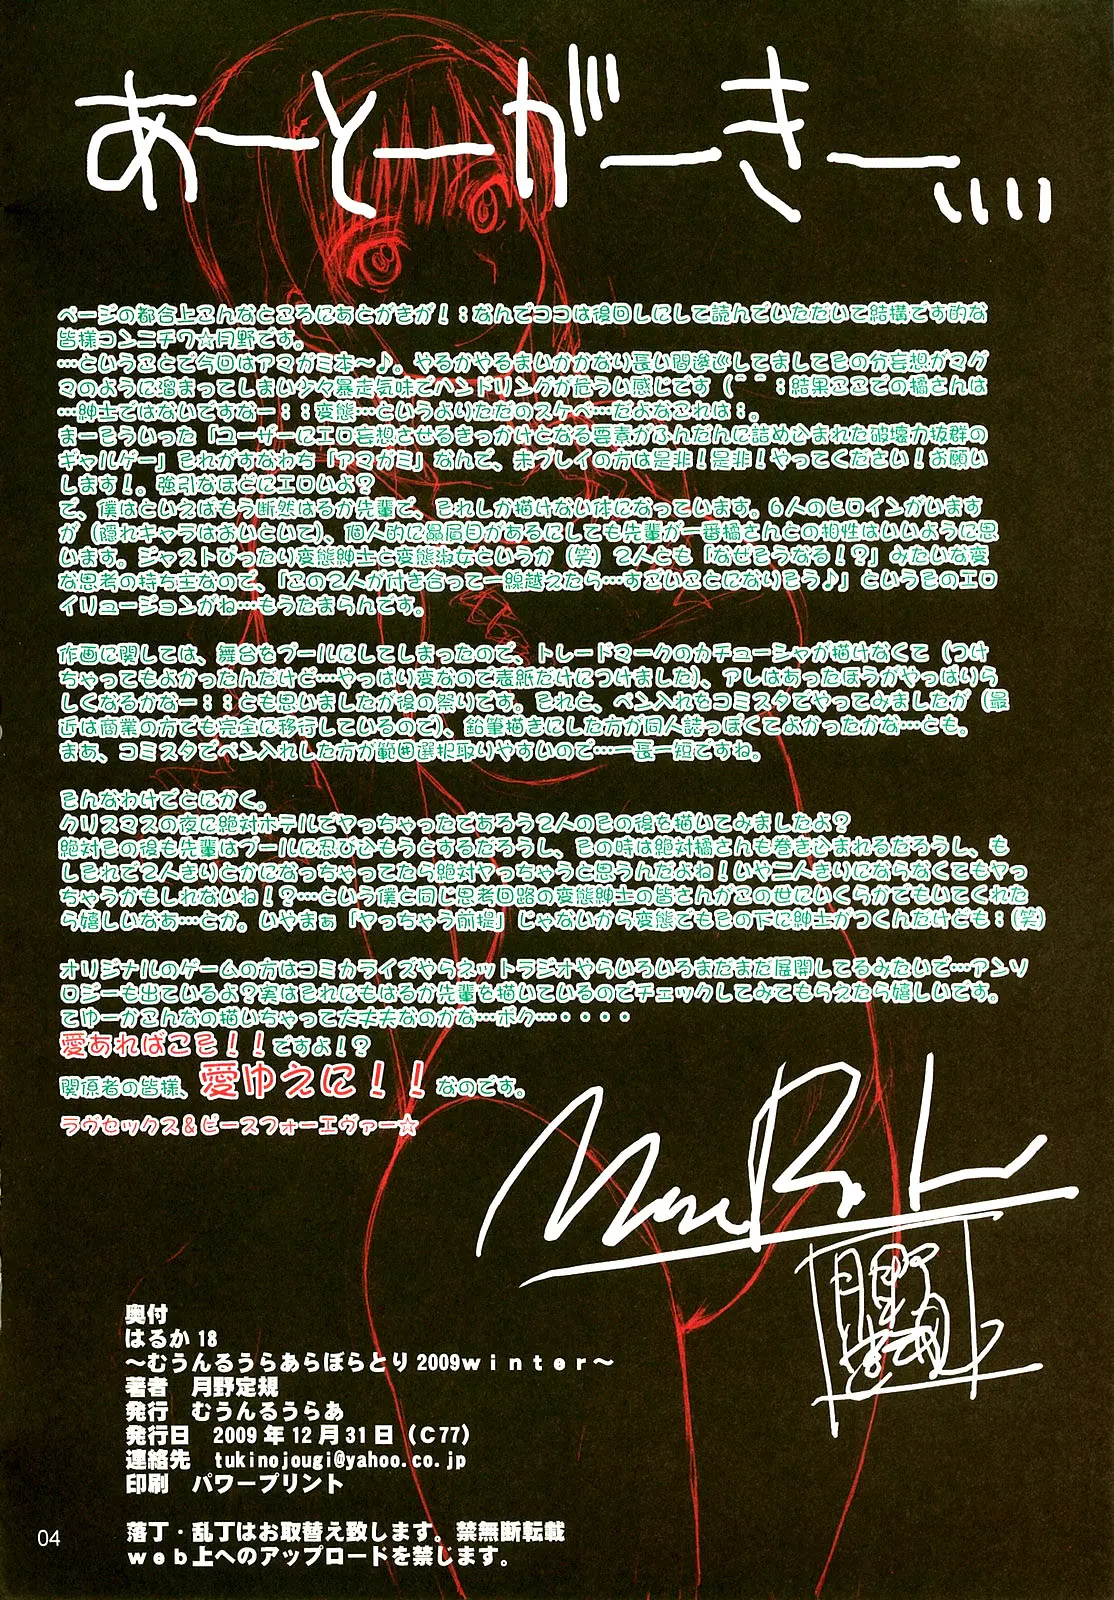 あーとーがーきー、、、、
ページの都合上こんなところにあとがきが！；なんでココは後回しにして読んでいただいて結構です的な
皆様コンニチワ☆月野です。
…ということで今回はアマガミ本〜♪。やるかやるまいかかなり長い間逡巡してましてその分妄想がマグ
マのように溜まってしまい少々暴走気味でハンドリングが危うい感じです（＾＾；結果ここでの橘さんは
…紳士ではないですなー；；変態…というよりただのスケベ…だよなこれは；。
まーそういった「ユーザーにエロ妄想させるきっかけとなる要素がふんだんに詰め込まれた破壊力抜群の
ギャルゲー」それがすなわち「アマガミ」なんで、未プレイの方は是非！是非！やってください！お願い
します！。強引なほどにエロいよ？
で、僕はといえばもう断然はるか先輩で、それしか描けない体になっています。６人のヒロインがいます
が（隠れキャラはおいといて）、個人的に贔屓目があるにしても先輩が一番橘さんとの相性はいいように思
います。ジャストぴったり変態紳士と変態淑女というか（笑）２人とも「なぜそうなる！？」みたいな変
な思考の持ち主なので、「この２人が付き合って一線越えたら…すごいことになりそう♪」というそのエロ
イリュージョンがね…もうたまらんです。
作画に関しては、舞台をプールにしてしまったので、トレードマークのカチューシャが描けなくて（つけ
ちゃってもよかったんだけど…やっぱり変なので表紙だけにつけました）、アレはあったほうがやっぱりら
しくなるかなー；；とも思いましたが後の祭りです。それと、ペン入れをコミスタでやってみましたが（最
近は商業の方でも完全に移行しているので）、鉛筆描きにした方が同人誌っぽくてよかったかな…とも。
まあ、コミスタでペン入れした方が範囲選択取りやすいので…一長一短ですね。
そんなわけでとにかく。
クリスマスの夜に絶対ホテルでヤっちゃったであろう２人のその後を描いてみましたよ？
絶対その後も先輩はプールに忍び込もうとするだろうし、その時は絶対橘さんも巻き込まれるだろうし、も
しそれで２人きりとかになっちゃってたら絶対ヤっちゃうと思うんだよね！いや二人きりにならなくてもヤっ
ちゃうかもしれないね！？…という僕と同じ思考回路の変態紳士の皆さんがこの世にいくらかでもいてくれた
ら嬉しいなあ…とか。いやまぁ「ヤっちゃう前提」じゃないから変態でもその下に紳士がつくんだけども；（笑）
オリジナルのゲームの方はコミカライズやらネットラジオやらいろいろまだまだ展開してるみたいで…アンソ
ロジーも出ているよ？実はそれにもはるか先輩を描いているのでチェックしてみてもらえたら嬉しいです。
てゆーかこんなの描いちゃって大丈夫なのかな…ボク…・・・・
愛あればこそ！！ですよ！？
関係者の皆様、愛ゆえに！！なのです。
ラヴセックス＆ピースフォーエヴァー☆
月野定規
奥付
はるか18
〜むうんるうらあらぼらとり2009winter〜
著者　月野定規
発行　むうんるうらあ
発行日　2009年12月31日（C77）
連絡先　tukinojougi@yahoo.co.jp
印刷　パワープリント
落丁・乱丁はお取替え致します。禁無断転載
web上へのアップロードを禁じます。
04